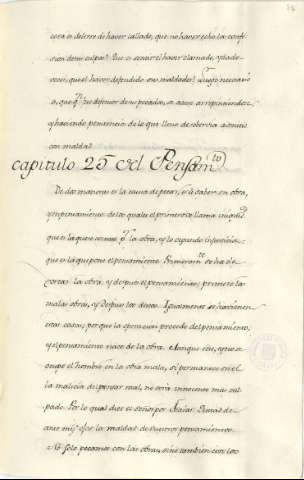 cosa es deleite de haver callado, que no haver echo la confe
sion de mi culpa? Que es sentir el haver clamado, y pade-
cer, que el haver defendido mis maldades? Luego necesario
es, que q.n fue defensor de mi pecado, o acuse arrepentiendo
y haciendo penitencia de lo que lleno de soberbia admitio
con maldad?
capitulo 25 del Pensam.to
De dos maneras es la causa de pecar, es a saber en obra,
y en pensamiento de los quales el primero se llama iniquidad
que es la que se comete p.r la obra, y lo segundo injusticia
que es la que pone el pensamiento. Primeram.te se ha de
cortar la obra, y despues el pensamiento; primero las
malas obras, y despues los deseos. Igualmente se
estas cosas, porque la obra procede del pensamiento,
y el pensamiento nace de la obra. Aunque
ocupe el hombre en la obra mala, si permanece en el
la malicia del pensar mal, no sera innocente mas cul-
pado. Por lo qual dice el Señor por Isaias. Quitad de
ante mis ojos la maldad de vuestros pensamientos.
No solo pecamos con las obras, sino tambien con los